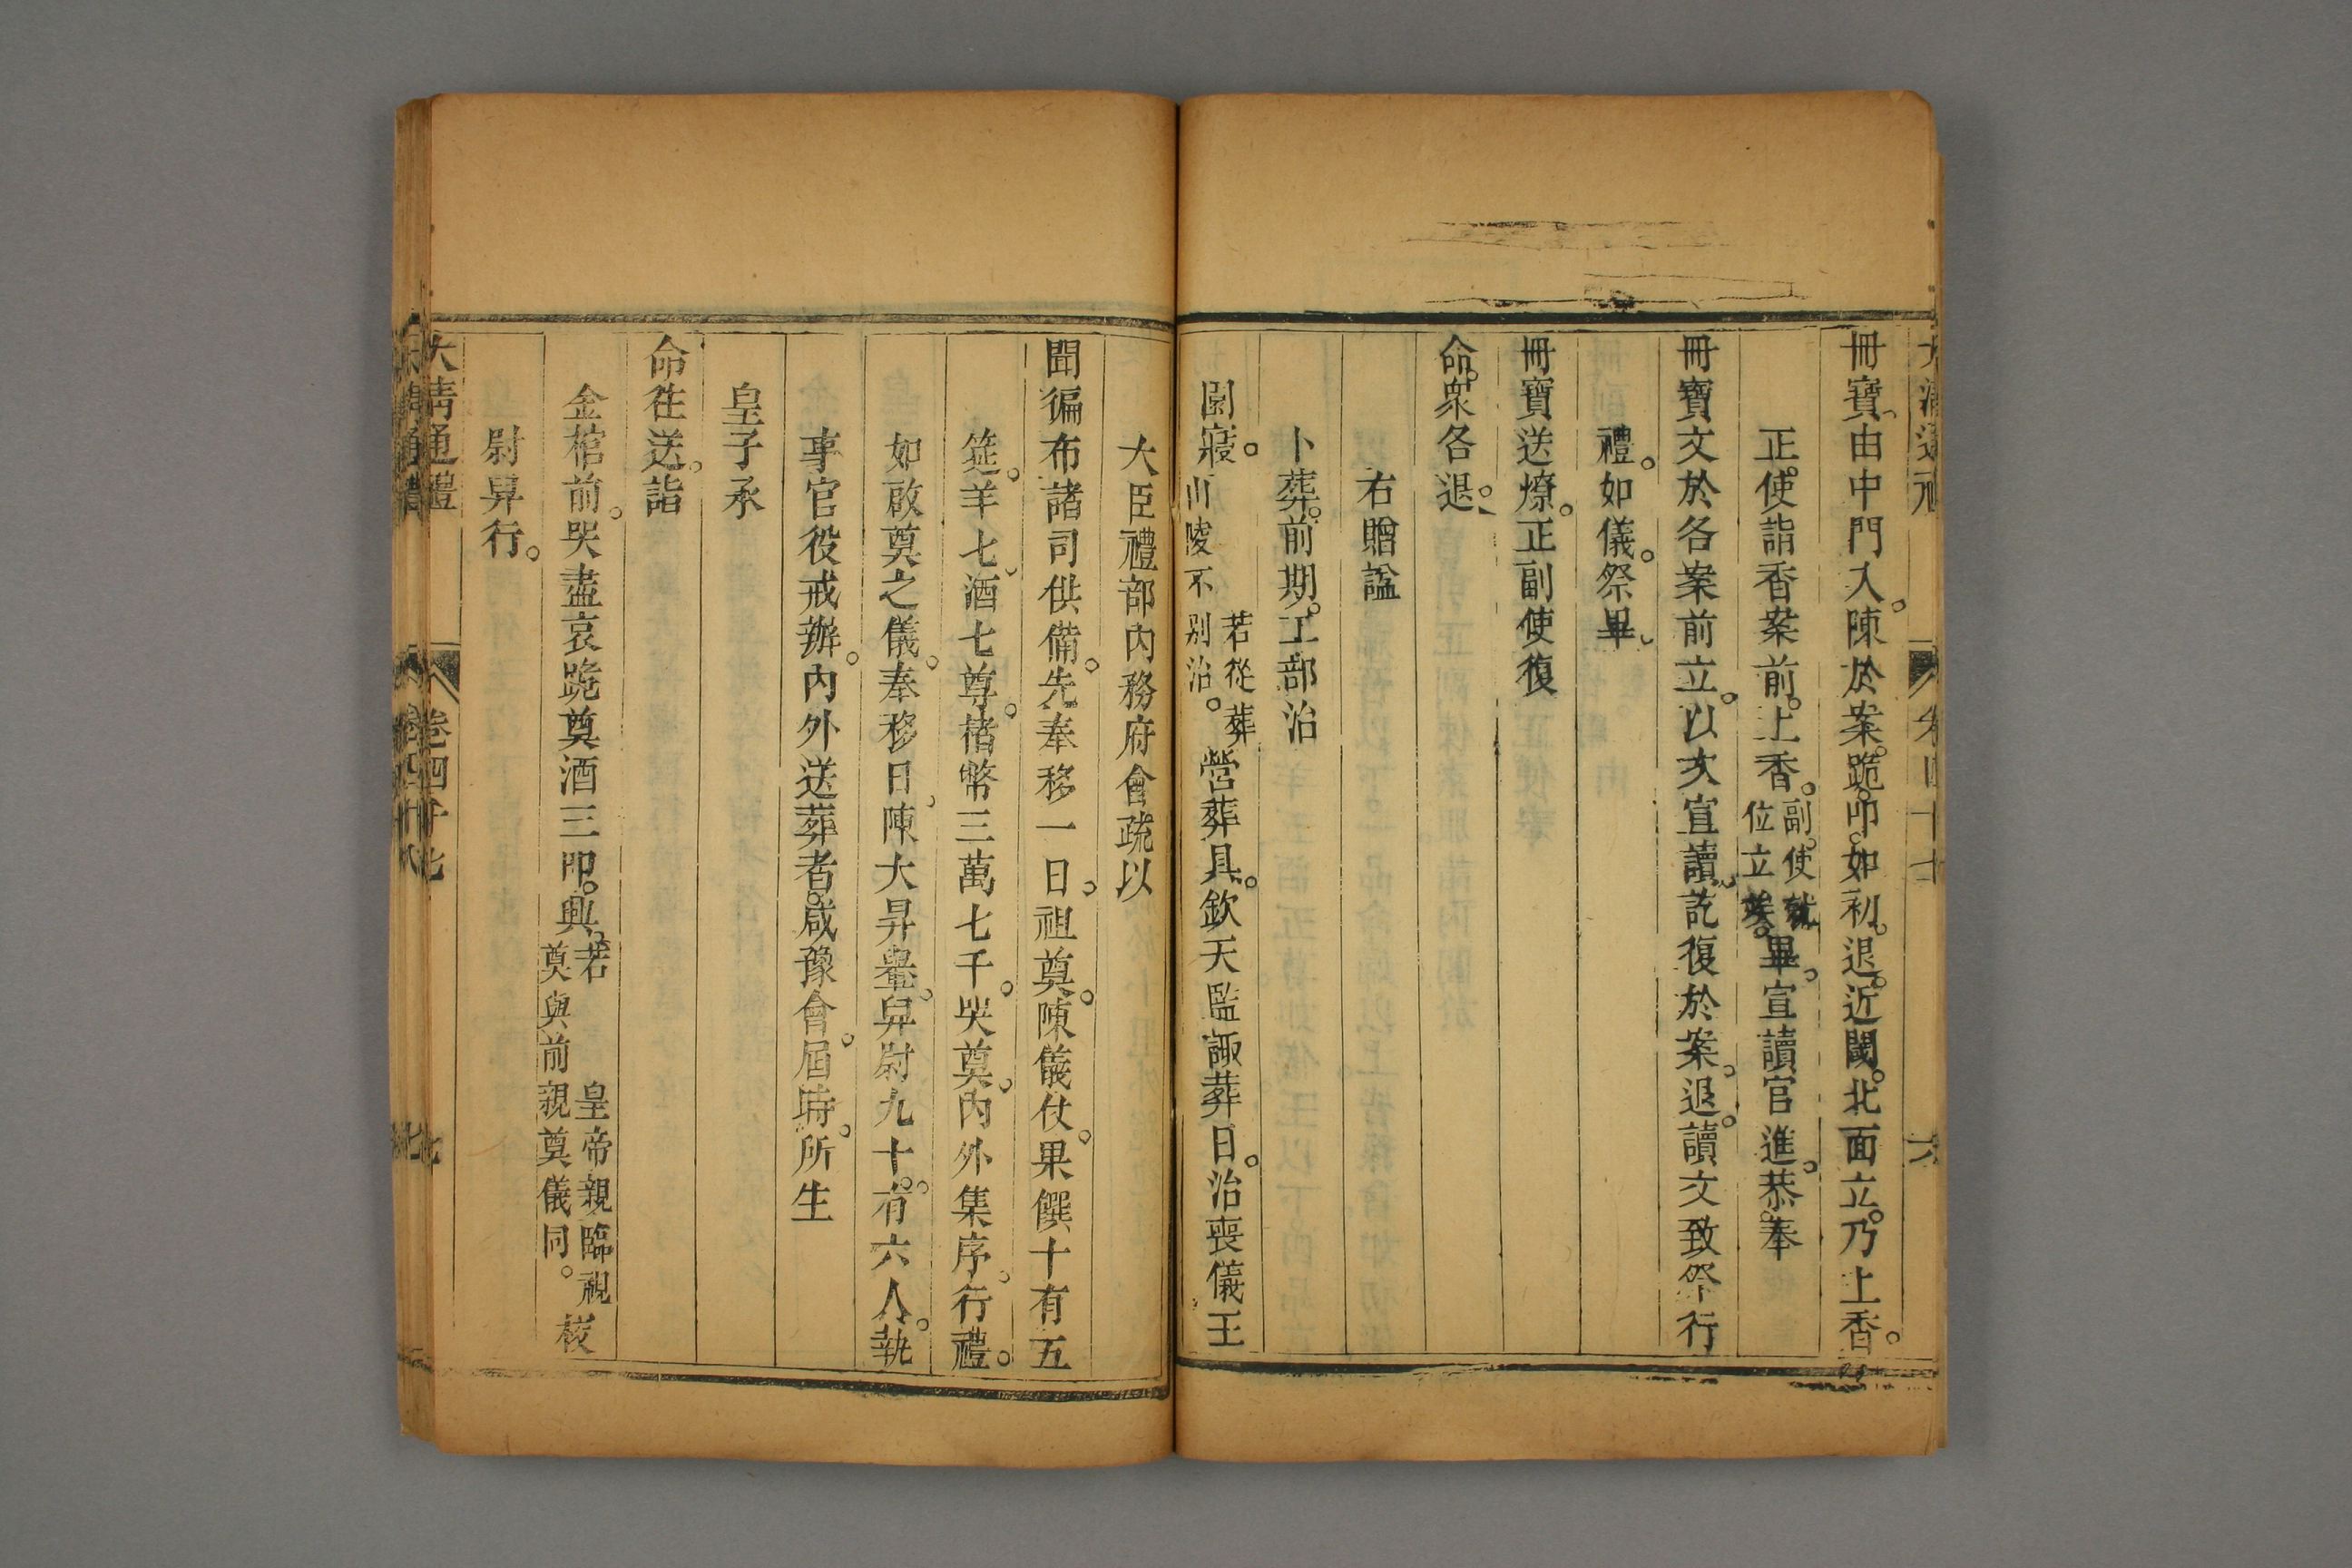 冊寶。由中門入。陳於案。跪。叩。如初。退。近閾。北面立。乃上香。
正使詣香案前。上香。副使就位立。俟。畢。宣讀官進。恭奉
冊寶文於各案前立。以次宣讀。訖。復於案。退。讀文致祭行
禮。如儀。祭畢。
冊寶送燎。正副使復
命。衆各退。
右贈諡
卜葬。前期。工部治
園寢。若從葬山陵不別治。營葬具。欽天監諏葬日。治喪儀王
大臣禮部內務府會疏以
聞徧布諸司供備。先奉移一日。祖奠。陳儀仗。果饌十有五
筵。羊七。酒七尊。楮幣三萬七千。哭奠。內外集序。行禮。
如啟奠之儀。奉移日。陳大昇轝。舁尉九十。有六人。執
事官役戒辦。內外送葬者。咸豫會。屆時。所生
皇子承
命往送。詣
金棺前。哭盡哀跪奠酒三。叩。興。若皇帝親臨視奠與前親奠儀同。校
尉舁行。
大清通禮 卷四十七 七